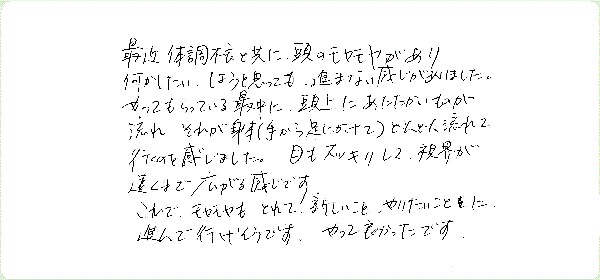 最近 体調不良と共に、頭のモヤモヤがあり
何かしたい、しようと思っても、進まない感じがありました。
やってもらっている最中に、頭上にあたたかいものが
流れ それが身体(手から足にかけて)どんどん流れて
行くのを感じました。 目もスッキリして、視界が
遠くまで広がる感じです
これで、モヤモヤも とれて、新しいこと、やりたいことに
進んで行けそうです。 やって良かったです。